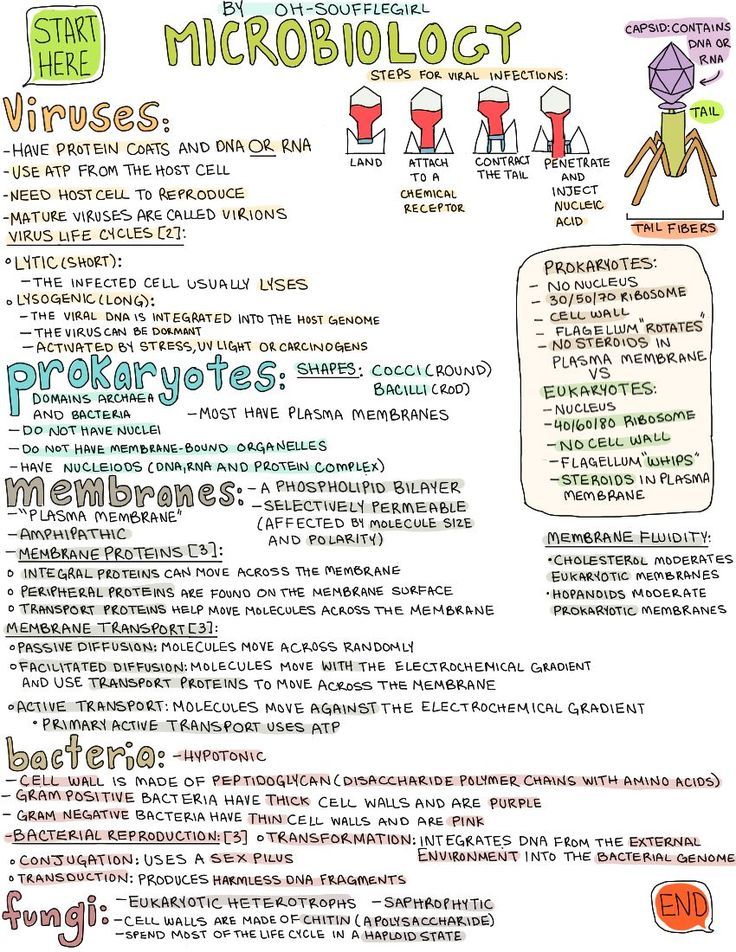 START
HERE
BY OH-SOUFFLEGIRL
MICROBIOLOGY
STEPS FOR VIRAL INFECTIONS:
LAND
ATTACH
TO A
CHEMICAL
RECEPTOR
CONTRACT
THE TAIL
PENETRATE
AND
INJECT
NUCLEIC
ACID
CAPSID: CONTAINS
DNA OR
RNA
TAIL
TAIL FIBERS
Viruses:
-HAVE PROTEIN COATS AND DNA OR RNA
-USE ATP FROM THE HOST CELL
-NEED HOST CELL TO REPRODUCE
-MATURE VIRUSES ARE CALLED VIRIONS
VIRUS LIFE CYCLES [2]:
°LYTIC (SHORT):
-THE INFECTED CELL USUALLY LYSES
°LYSOGENIC (LONG):
-THE VIRAL DNA IS INTEGRATED INTO THE HOST GENOME
-THE VIRUS CAN BE DORMANT
-ACTIVATED BY STRESS, UV LIGHT OR CARCINOGENS
PROKARYOTES:
- NO NUCLEUS
- 30/50/70 RIBOSOME
- CELL WALL
- FLAGELLUM "ROTATES"
- NO STEROIDS IN
PLASMA MEMBRANE
VS
EUKARYOTES:
-NUCLEUS
-40/60/80 RIBOSOME
-NO CELL WALL
-FLAGELLUM "WHIPS"
-STEROIDS IN PLASMA
MEMBRANE
prokaryotes:
SHAPES: COCCI (ROUND)
BACILLI (ROD)
DOMAINS ARCHAEA
AND BACTERIA
-MOST HAVE PLASMA MEMBRANES
-DO NOT HAVE NUCLEI
-DO NOT HAVE MEMBRANE-BOUND ORGANELLES
-HAVE NUCLEIODS (DNA, RNA AND PROTEIN COMPLEX)
membranes:
-A PHOSPHOLIPID BILAYER
-SELECTIVELY PERMEABLE
(AFFECTED BY MOLECULE SIZE
AND POLARITY)
-"PLASMA MEMBRANE"
-AMPHIPATHIC
-MEMBRANE PROTEINS [3]:
° INTEGRAL PROTEINS CAN MOVE ACROSS THE MEMBRANE
° PERIPHERAL PROTEINS ARE FOUND ON THE MEMBRANE SURFACE
° TRANSPORT PROTEINS HELP MOVE MOLECULES ACROSS THE MEMBRANE
MEMBRANE FLUIDITY:
•CHOLESTEROL MODERATES
EUKARYOTIC MEMBRANES
•HOPANOIDS MODERATE
PROKARYOTIC MEMBRANES
MEMBRANE TRANSPORT [3]:
°PASSIVE DIFFUSION: MOLECULES MOVE ACROSS RANDOMLY
°FACILITATED DIFFUSION: MOLECULES MOVE WITH THE ELECTROCHEMICAL GRADIENT
AND USE TRANSPORT PROTEINS TO MOVE ACROSS THE MEMBRANE
°ACTIVE TRANSPORT: MOLECULES MOVE AGAINST THE ELECTROCHEMICAL GRADIENT
• PRIMARY ACTIVE TRANSPORT USES ATP
bacteria:
-HYPOTONIC
- CELL WALL IS MADE OF PEPTIDOGLYCAN (DISACCHARIDE POLYMER CHAINS WITH AMINO ACIDS)
- GRAM POSITIVE BACTERIA HAVE THICK CELL WALLS AND ARE PURPLE
- GRAM NEGATIVE BACTERIA HAVE THIN CELL WALLS AND ARE PINK
-BACTERIAL REPRODUCTION: [3] °TRANSFORMATION: INTEGRATES DNA FROM THE EXTERNAL
ENVIRONMENT INTO THE BACTERIAL GENOME
° CONJUGATION: USES A SEX PILUS
° TRANSDUCTION: PRODUCES HARMLESS DNA FRAGMENTS
fungi:
-EUKARYOTIC HETEROTROPHS -SAPHROPHYTIC
-CELL WALLS ARE MADE OF CHITIN (A POLYSACCHARIDE)
-SPEND MOST OF THE LIFE CYCLE IN A HAPLOID STATE
END